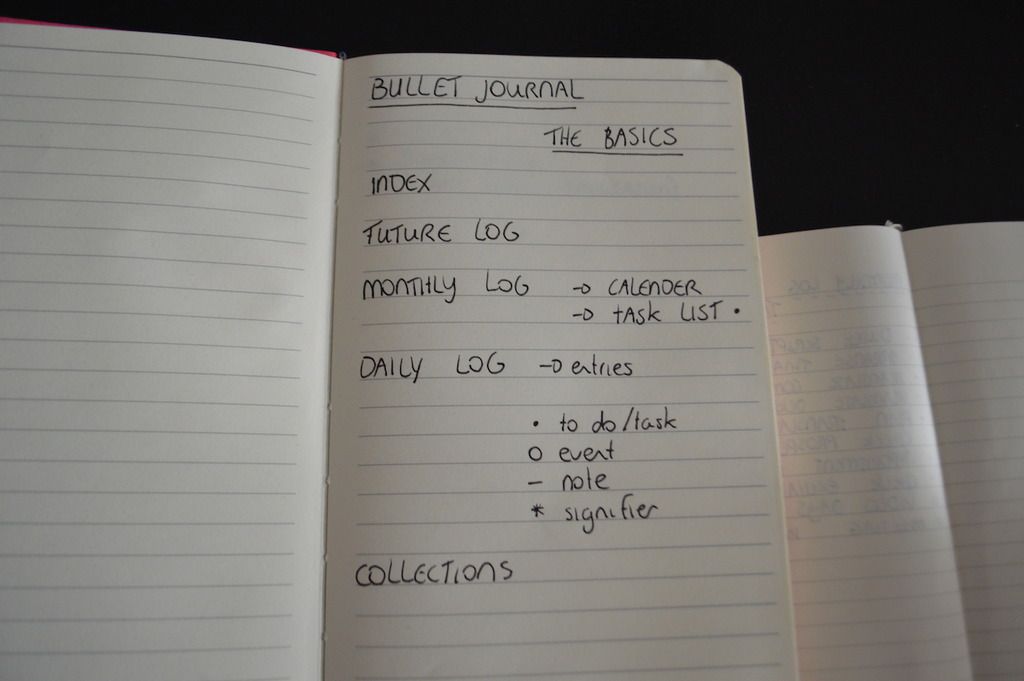 BULLET JOURNAL
THE BASICS
INDEX
FUTURE LOG
MONTHLY LOG → CALENDER
→ TASK LIST •
DAILY LOG → entries
• to do/task
O event
– note
* signifier
COLLECTIONS